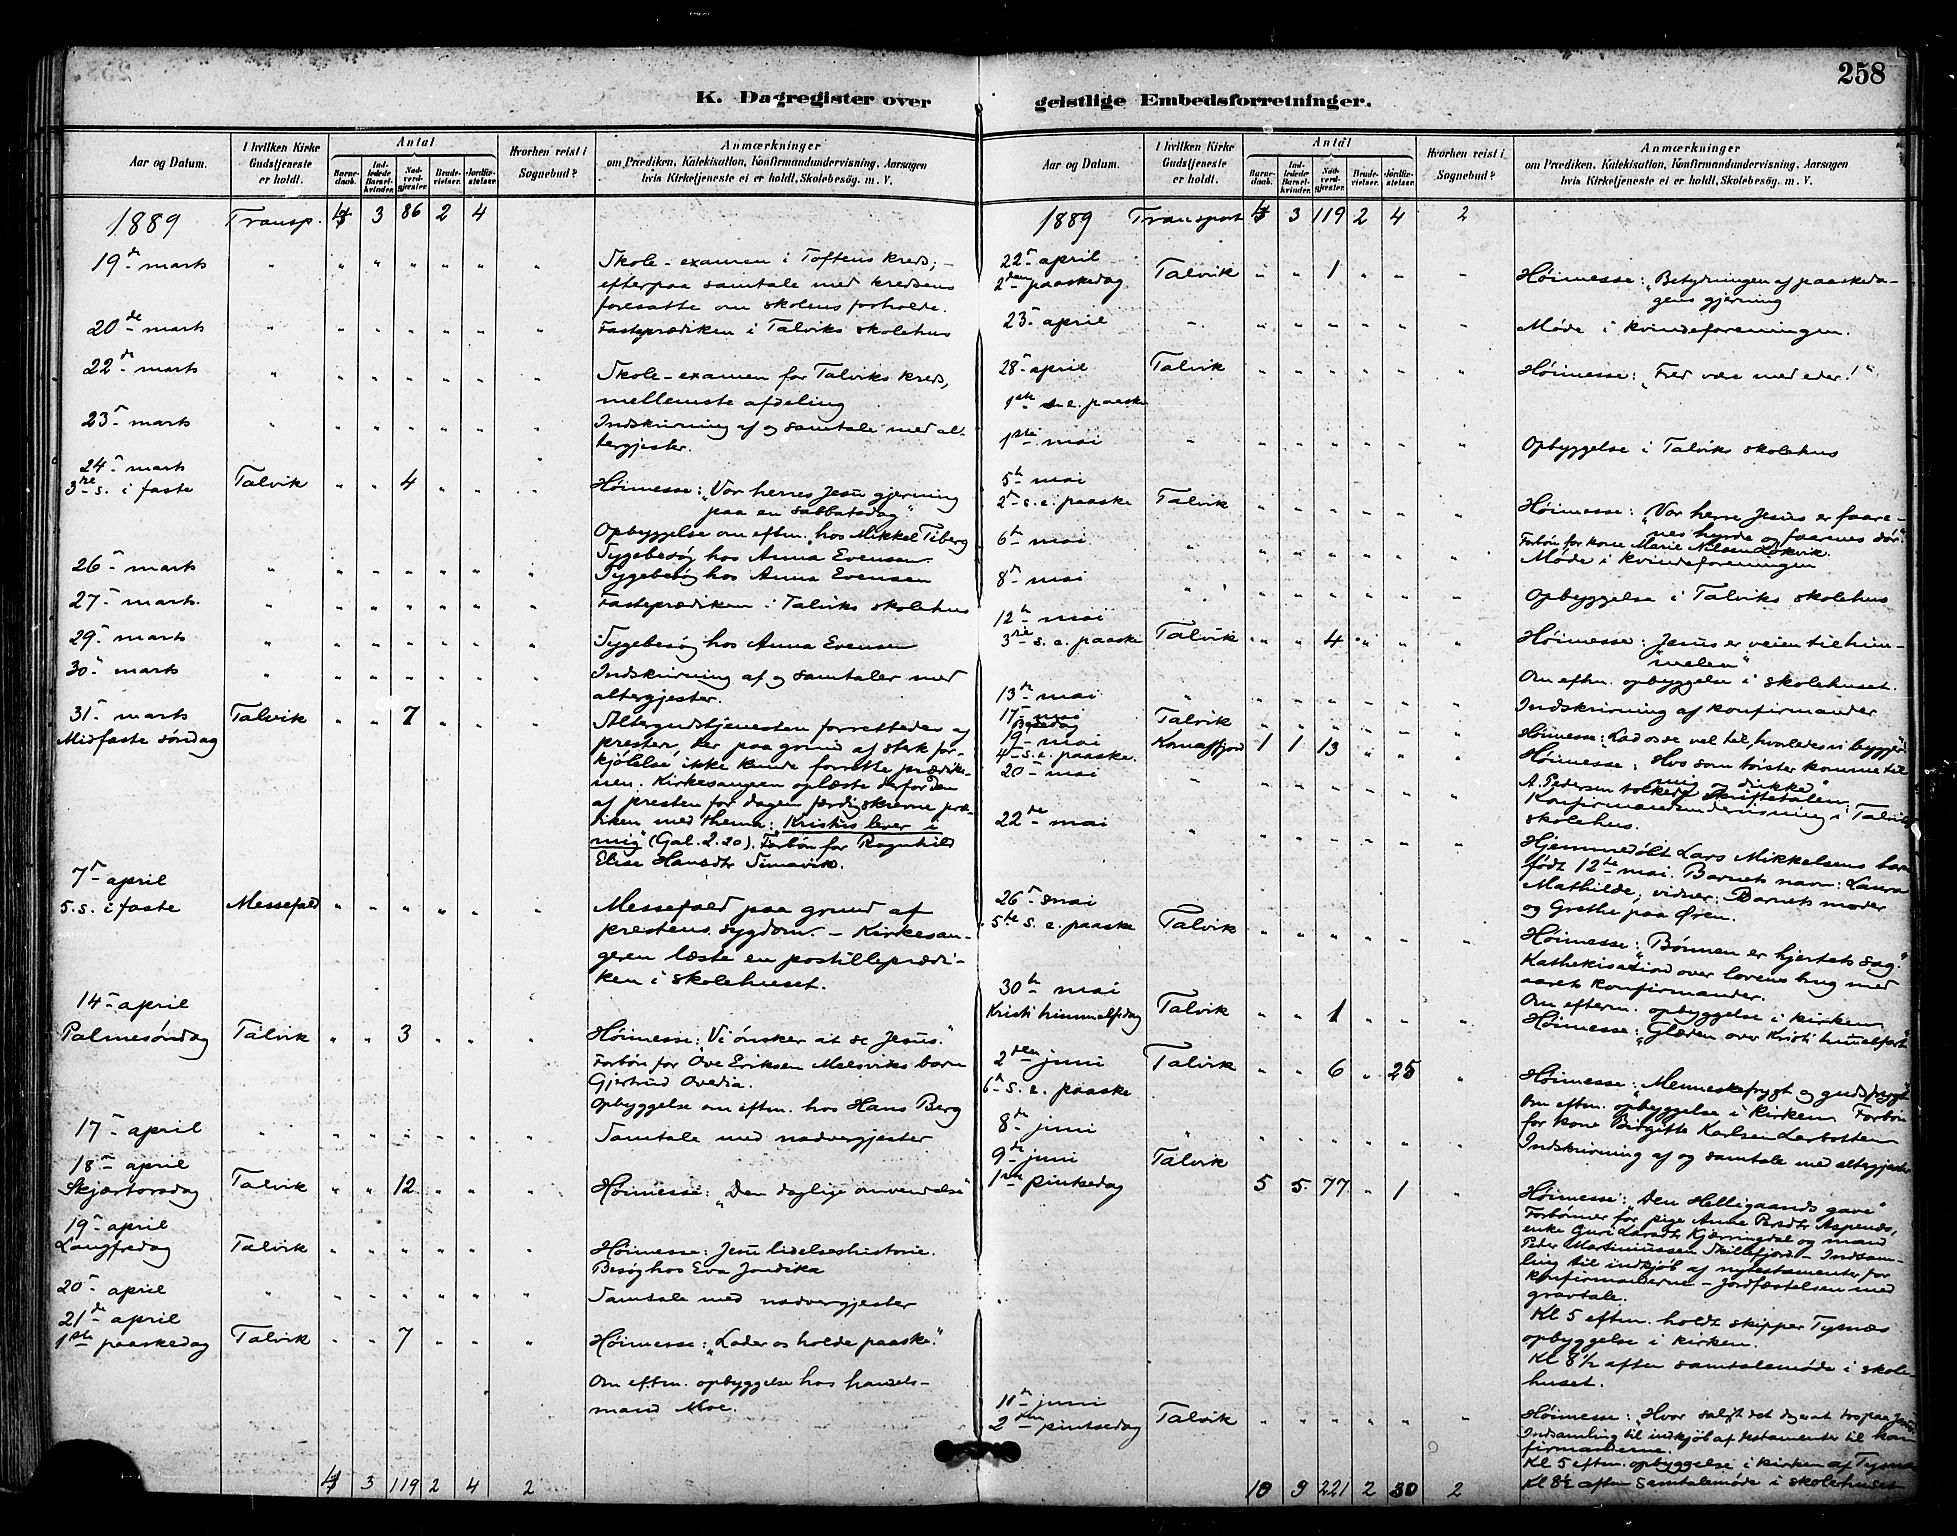 258
K. Dagregister over
geistlige Embedsforretninger.
Aar og Datum.
I hvilken Kirke Gudstjeneste er holdt.
Antal
Barnedaab.
Indledede Barselkvinder.
Nadverdgjester.
Brudevielser.
Jordfæstelser.
Hvorhen reist i Sognebud?
Anmærkninger
om Prædiken, Katekisation, Konfirmandundervisning, Aarsagen
hvis Kirketjeneste ei er holdt, Skolebesøg. m. V.
1889 Transp. 4 3 86 2 4
19de marts " Skole-examen i Toftens kreds; -
efterpaa samtale med kredsens
foresatte om skolens forholde.
20de marts " Fasteprædiken i Talviks skolehus
22de marts " Skole-examen for Talviks kreds,
mellemste afdeling
23- marts " Indskrivning af og samtale med al-
tergjester.
24- marts
3re s. i faste Talvik " " 4 " " Høimesse: "Vor herres Jesu gjerning
paa en sabbatsdag"
Opbyggelse om eftm. hos Mikkel Tiberg
Sygebesøg hos Anna Evensen.
26- marts " Sygebesøg hos Anna Evensen
27- marts. " Fasteprædiken i Talviks skolehus
29- marts " Sygebesøg hos Anna Evensen
30- marts " Indskrivning af og samtaler med
altergjester.
31- marts
Midfaste søndag Talvik " " 7 " " Altergudstjenesten forrettedes af
presten, der paa grund af sterk for-
kjølelse ikke kunde forrette prædike-
nen. Kirkesangeren oplæste derfor den
af presten for dagen færdigskrevne præ-
diken med thema: "Kristus lever i
mig" (Gal. 2.20). Forbøn for Ragnhild
Elise Hansdtr Simavik.
7- april
5. s. i faste Messefald " " " " " Messefald paa grund af
prestens sygdom. - Kirkesan-
geren læste en postilleprædi-
ken i skolehuset.
14- april
Palmesøndag Talvik " " 3 " " Høimesse: "Vi ønsker at se Jesus."
Forbøn for Ove Eriksen Melsviks barn
Gjertrud Ovedia.
Opbyggelse om eftm. hos Hans Berg
17- april " Samtale med nadvergjester
18- april
Skjærtorsdag Talvik " " 12 " " Høimesse: "Den daglige omvendelse"
19- april
Langfredag Talvik " " " " " Høimesse: Jesu lidelseshistorie.
Besøg hos Eva Jondika
20- april " Samtale med nadvergjester
21de april
1ste paaskedag Talvik " " 7 " " Høimesse: "Lader os holde paaske."
Om eftm. opbyggelse hos handels-
mand Moe.
4 3 119 2 4 2
Aar og Datum.
I hvilken Kirke Gudstjeneste er holdt.
Antal
Barnedaab.
Indledede Barselkvinder.
Nadverdgjester.
Brudevielser.
Jordfæstelser.
Hvorhen reist i Sognebud?
Anmærkninger
om Prædiken, Katekisation, Konfirmandundervisning, Aarsagen
hvis Kirketjeneste ei er holdt, Skolebesøg. m. V.
1889 Transport 4 3 119 2 4 2
22- april
2den paaskedag Talvik " " 1 " " Høimesse: "Betydningen af paaskeda-
gens gjerning
23- april " Møde i kvindeforeningen.
28- april Talvik Høimesse: "Fred være med eder!"
1ste s. e. paaske
1ste mai " Opbyggelse i Talviks skolehus
5te mai
2- s. e. paaske Talvik Høimesse: "Vor herre Jesus er faare-
nes hyrde og faarnes dør."
Forbøn for kone Marie Nilsen Lokvik.
6te mai " Møde i kvindeforeningen
8de mai " Opbyggelse i Talviks skolehus
12te mai
3re s. e. paaske Talvik " " 4 " " Høimesse: Jesus er veien til him-
melen"
Om eftm. opbyggelse i skolehuset.
13de mai " Indskrivning af konfirmander
17- mai
Bededag Talvik Høimesse: "Lad os se vel til, hvorledes vi bygge"
19- mai
4- s. e. paaske. Komagfjord 1 1 13 " " Høimesse: Hvo som tørster komme til
mig og drikke"
A. Pedersen tolkede skriftetalen.
20- mai " Konfirmandundervisning i Talviks
skolehus.
22de mai " Hjemmedøbt Lars Mikkelsens barn
født 12te mai. Barnets navn: Laura
Mathilde; vidner: Barnets moder
og Grethe paa Øren.
26- mai
5te s. e. paaske Talvik Høimesse: "Bønnen er hjertets sag."
Kathekisation over lovens brug med
aarets konfirmander.
Om efterm. opbyggelse i kirken
30te mai
Kristi himmelfdag Talvik " " 1 " " Høimesse: "Glæden over Kristi himelfart"
2den juni
6te s. e. paaske Talvik " " 6 " 25 Høimesse: "Menneskefrygt og gudsfrygt"
Om eftm. opbyggelse i kirken Forbøn
for kone Birgitte Karlsen Lerbotten
8de juni " Indskrivning af og samtale med altergjester
9de juni
1ste pintsedag Talvik 5 5 77 " 1 Høimesse: "Den Helligaands gave"
Forbønner for pige Anne Persdtr Aspenes,
enke Guri Larsdtr Kjærringdal og mand
Peder Martinussen Skillefjord - Indsam-
ling til indkjøb af nytestamenter for
konfirmanderne - Jordfæstelsen med
gravtale.
Kl 5 eftm. holdt skipper Tysnæs
opbyggelse i kirken.
Kl 8 1/2 aften samtalemøde i skole-
huset.
11te juni
2den pintsedag Talvik Høimesse: "Hvor saligt det dog er at tro paa Jesus."
Indsamling til indkjøb af testamenter til kon
firmanderne.
Kl 5 eftm. opbyggelse i kirken af Tysnæs
Kl 8½ aften samtalemøde i skolehuset
10 9 221 2 30 2